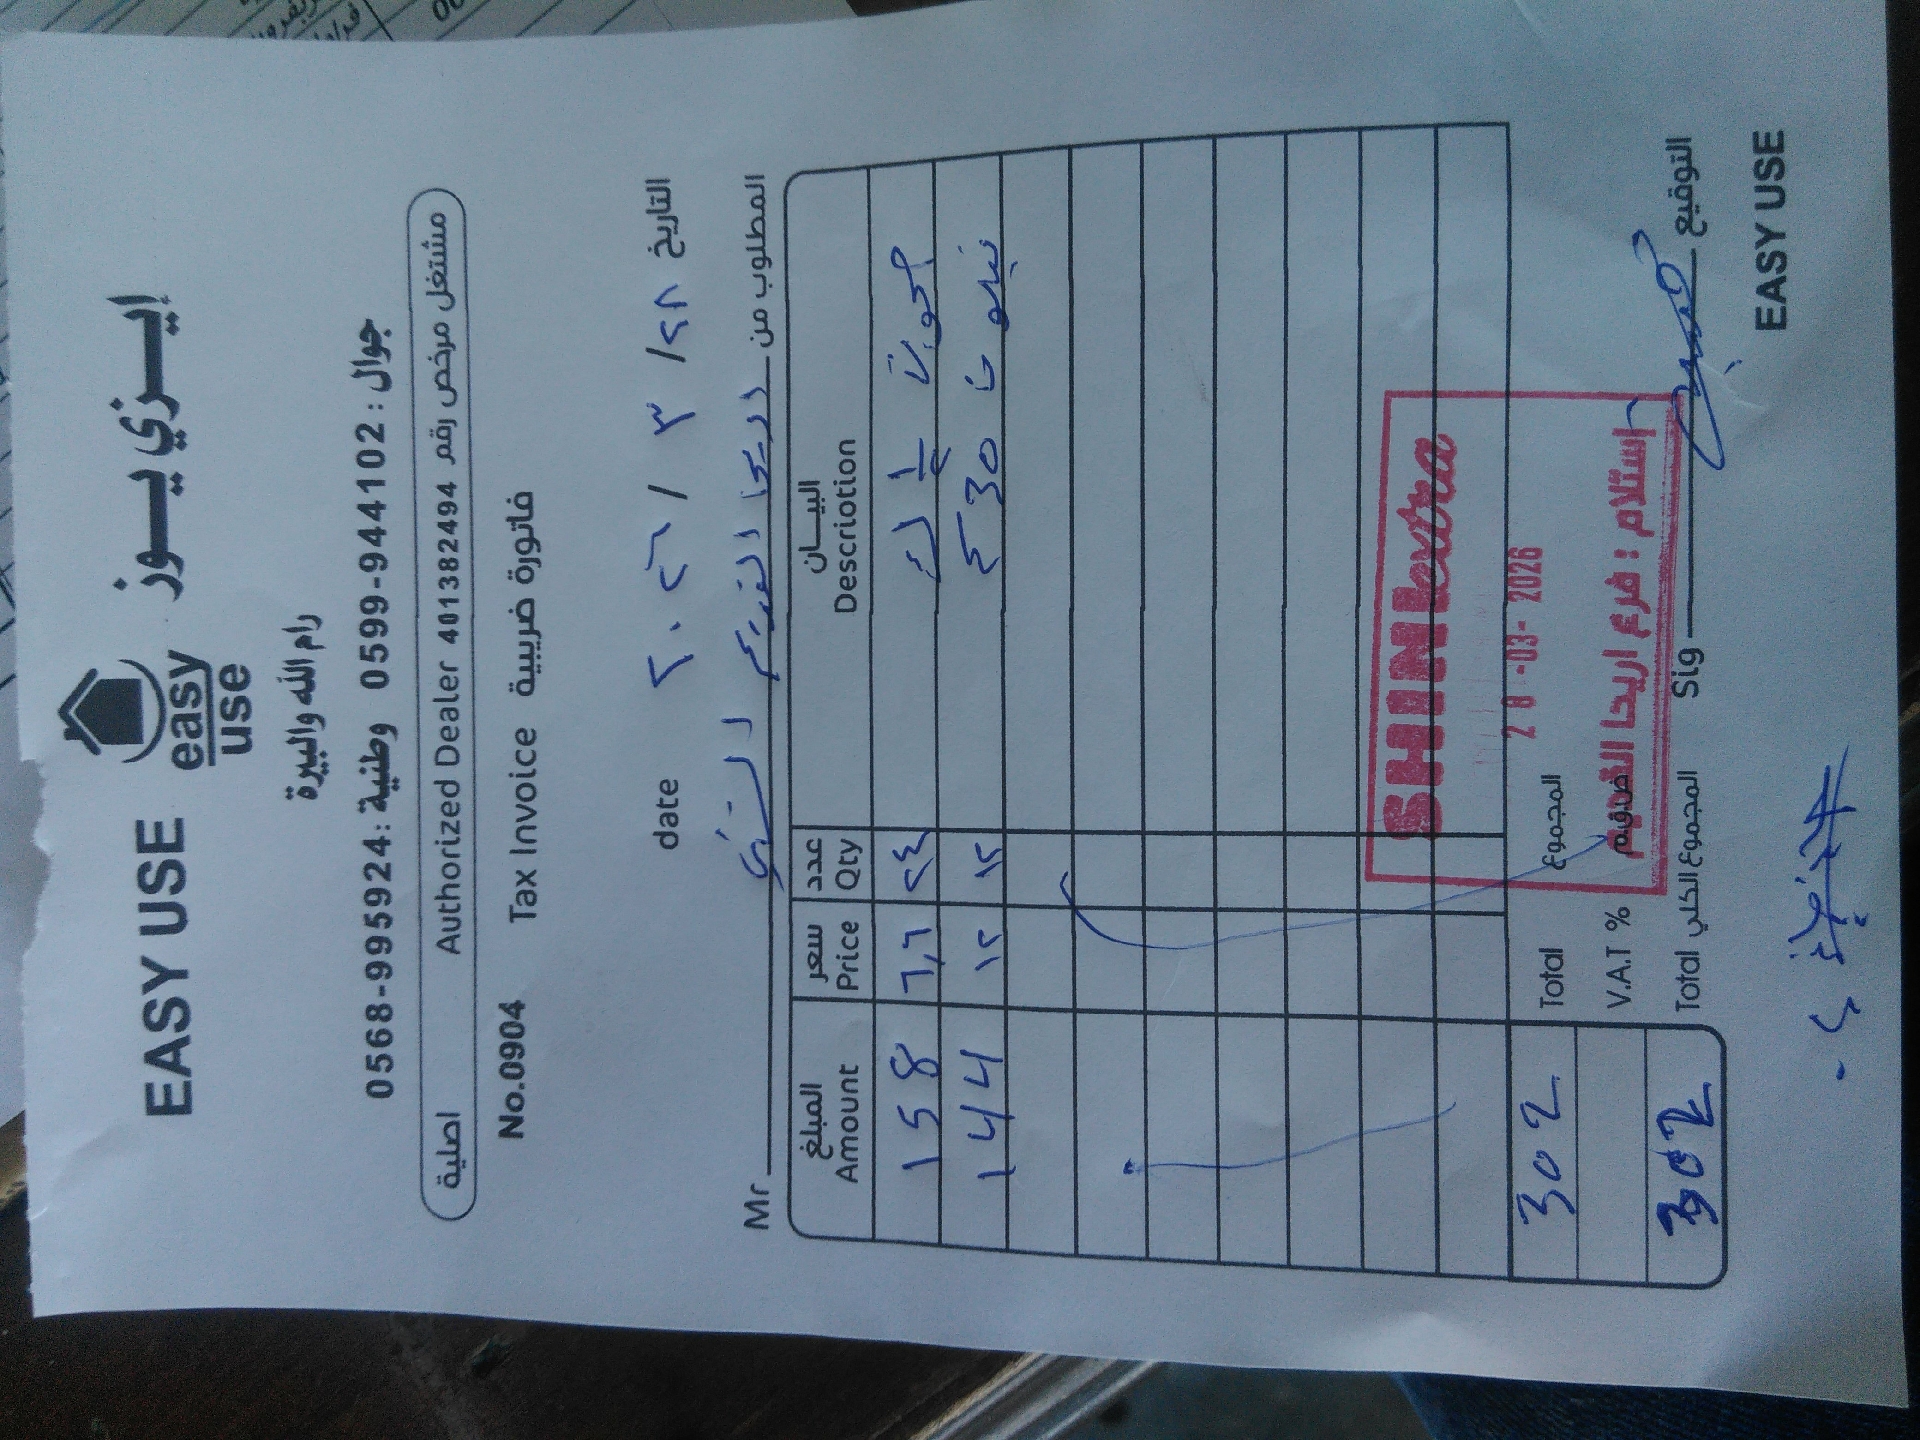 EASY USE easy use إيـــزي يـــوز
رام الله والبيرة
جوال : 0599-944102 وطنية : 0568-995924
اصلية Authorized Dealer 401382494 مشتغل مرخص رقم
No.0904 Tax Invoice فاتورة ضريبية
date ٢٠٢٦ / ٣ / ٢٨ التاريخ
Mr المطلوب من اريحا القديم
المبلغ Amount سعر Price عدد Qty البيـــان Descriotion
158 ٦,٦ ٢٤
144 ١٢ ١٢ 30
SHINI extra
28-03-2026
إستلام : فرع اريحا القديم
302 Total المجموع
V.A.T % ض.ق.م
302 Total المجموع الكلي
Sig التوقيع
EASY USE